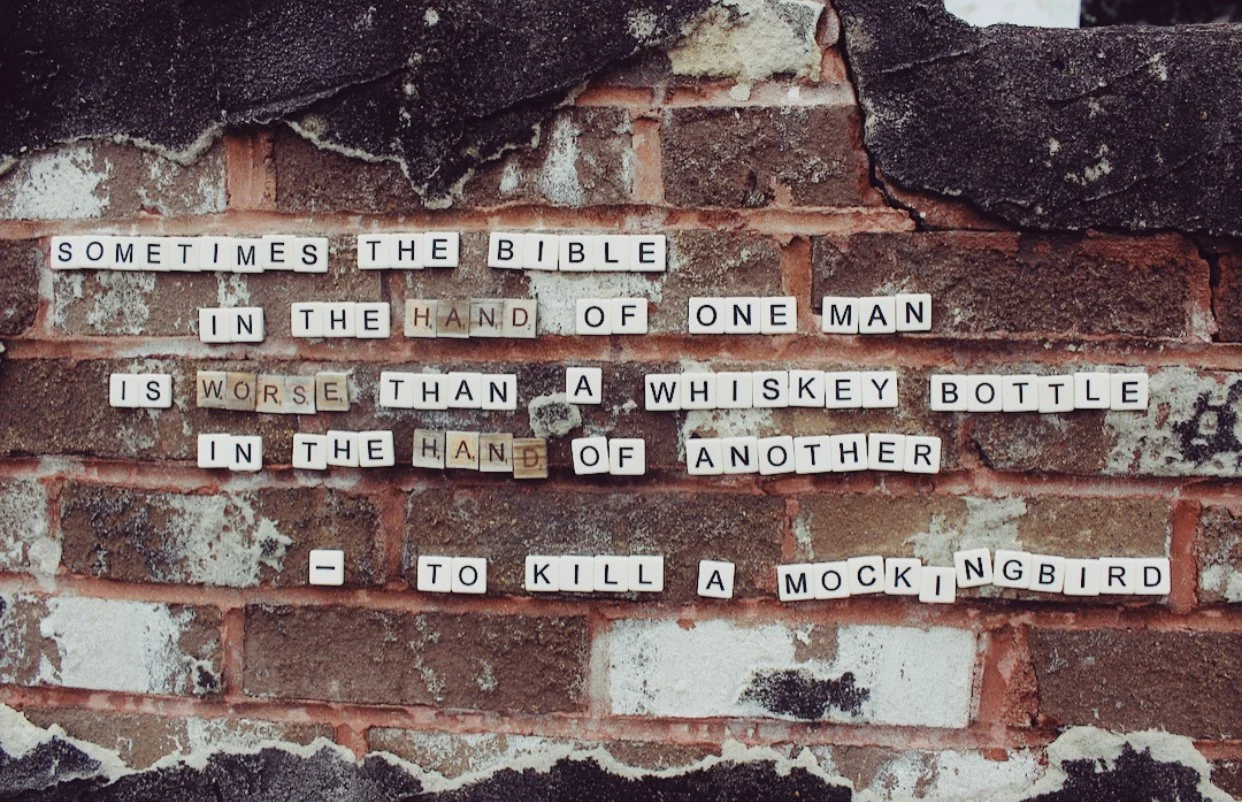 SOMETIMES THE BIBLE
IN THE HAND OF ONE MAN
IS WORSE THAN A WHISKEY BOTTLE
IN THE HAND OF ANOTHER
— TO KILL A MOCKINGBIRD